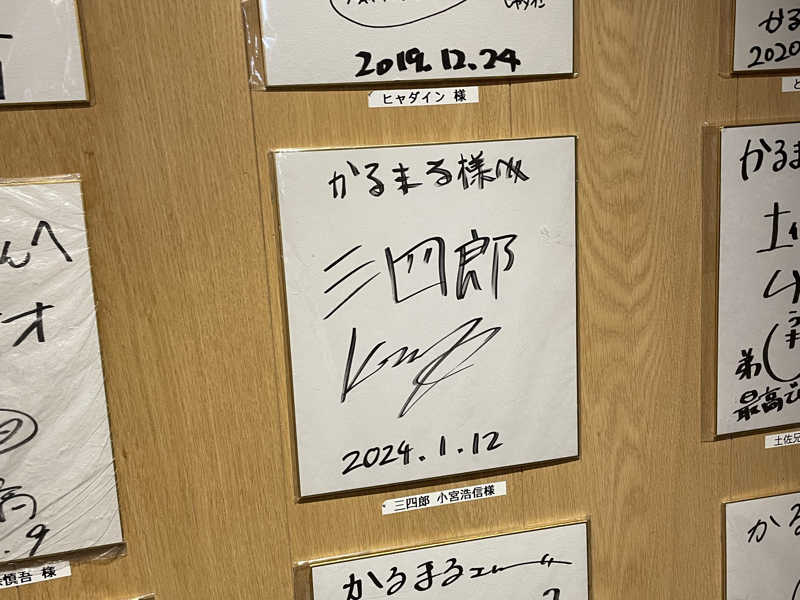 2019.12.24
ヒャダイン 様
かるまる様
三四郎
2024.1.12
三四郎 小宮浩信様
かるまる
んへ
オ
.9
慎吾 様
かる
2020
かるま
弟
最高で
土佐兄
かる